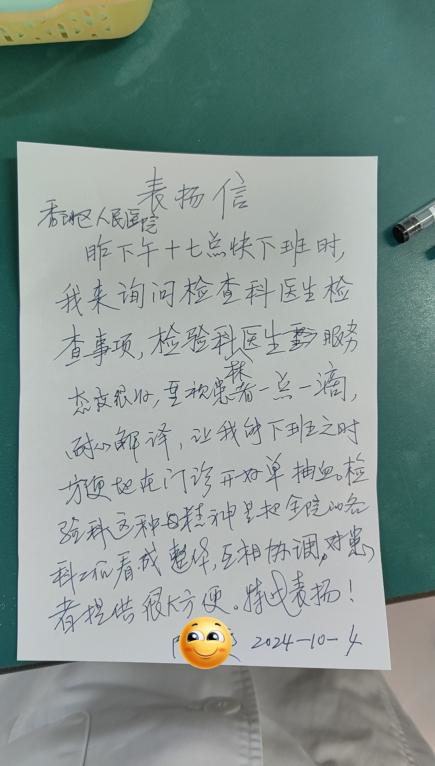 表扬信
香洲区人民医院
昨下午十七点快下班时,
我来询问检查科医生检
查事项,检验科医生服务
态度很好,重视患者一点一滴,
耐心解译,让我能下班之时
方便地在门诊开好单抽血。检
验科这种精神是把全院的各
科工作看成整体,互相协调。对患
者提供很大方便。特此表扬!
2024-10-4